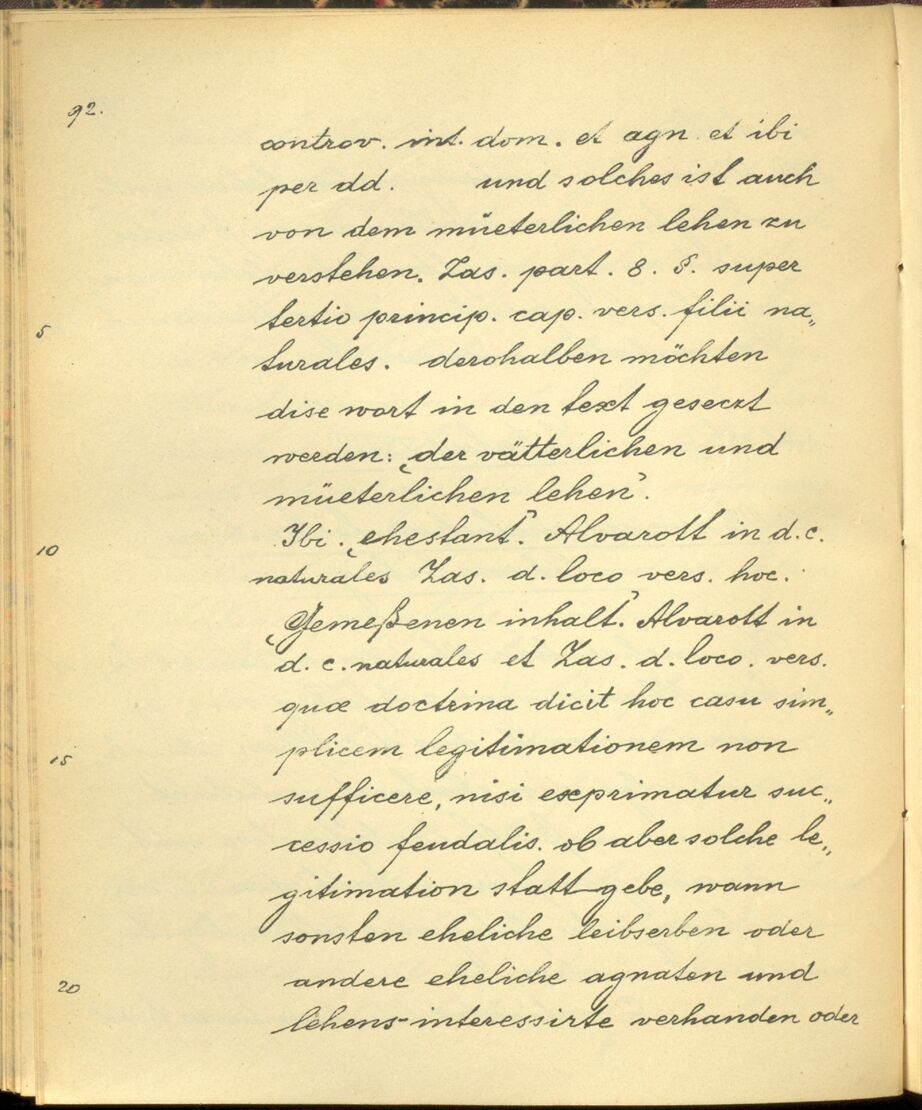 92.
controv. int. dom. et agn. et ibi
per dd. und solches ist auch
von dem müeterlichen lehen zu
verstehen. Zas. part. 8. §. super
5 tertio princip. cap. vers. filii na„
turales. derohalben möchten
dise wort in den text geseczt
werden: „der vätterlichen und
müeterlichen lehen”.
10 Ibi. „ehestant”. Alvarott in d. c.
naturales Zas. d. loco vers. hoc.
„Gemeßenen inhalt”. Alvarott in
d. c. naturales et Zas. d. loco. vers.
quæ doctrina dicit hoc casu sim„
15 plicem legitimationem non
sufficere, nisi exprimatur suc„
cessio feudalis. ob aber solche le„
gitimation statt gebe, wann
sonsten eheliche leibserben oder
20 andere eheliche agnaten und
lehens-interessirte verhanden oder